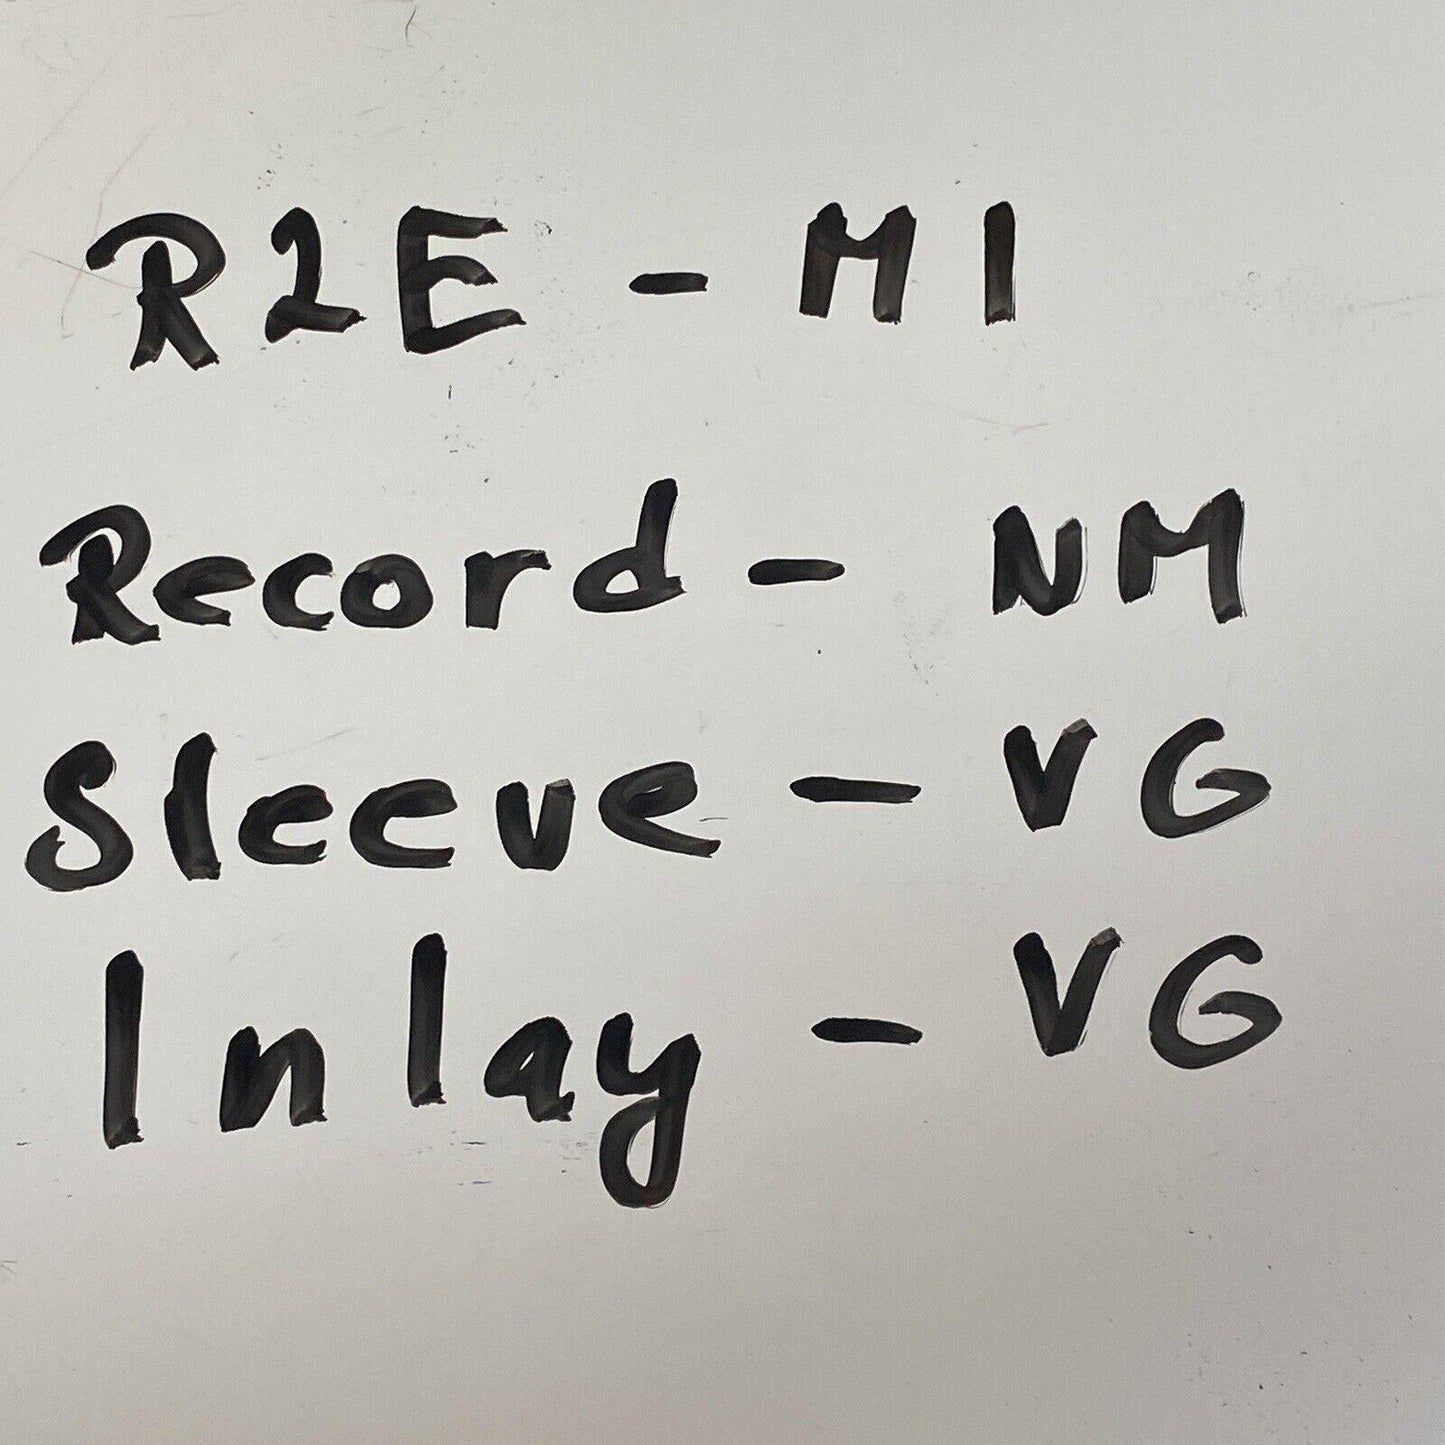 R2E - M1
Record - NM
Sleeve - VG
Inlay - VG